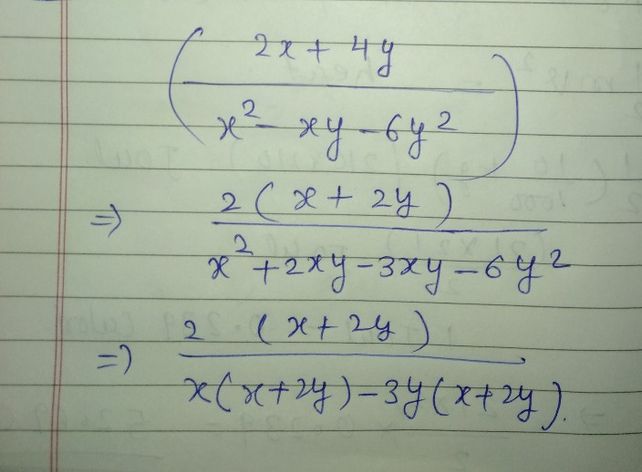 ( 2x + 4y
x² - xy - 6y² )
⇒ 2 ( x + 2y )
x² + 2xy - 3xy - 6y²
⇒ 2 ( x + 2y )
x(x+2y) - 3y(x+2y).